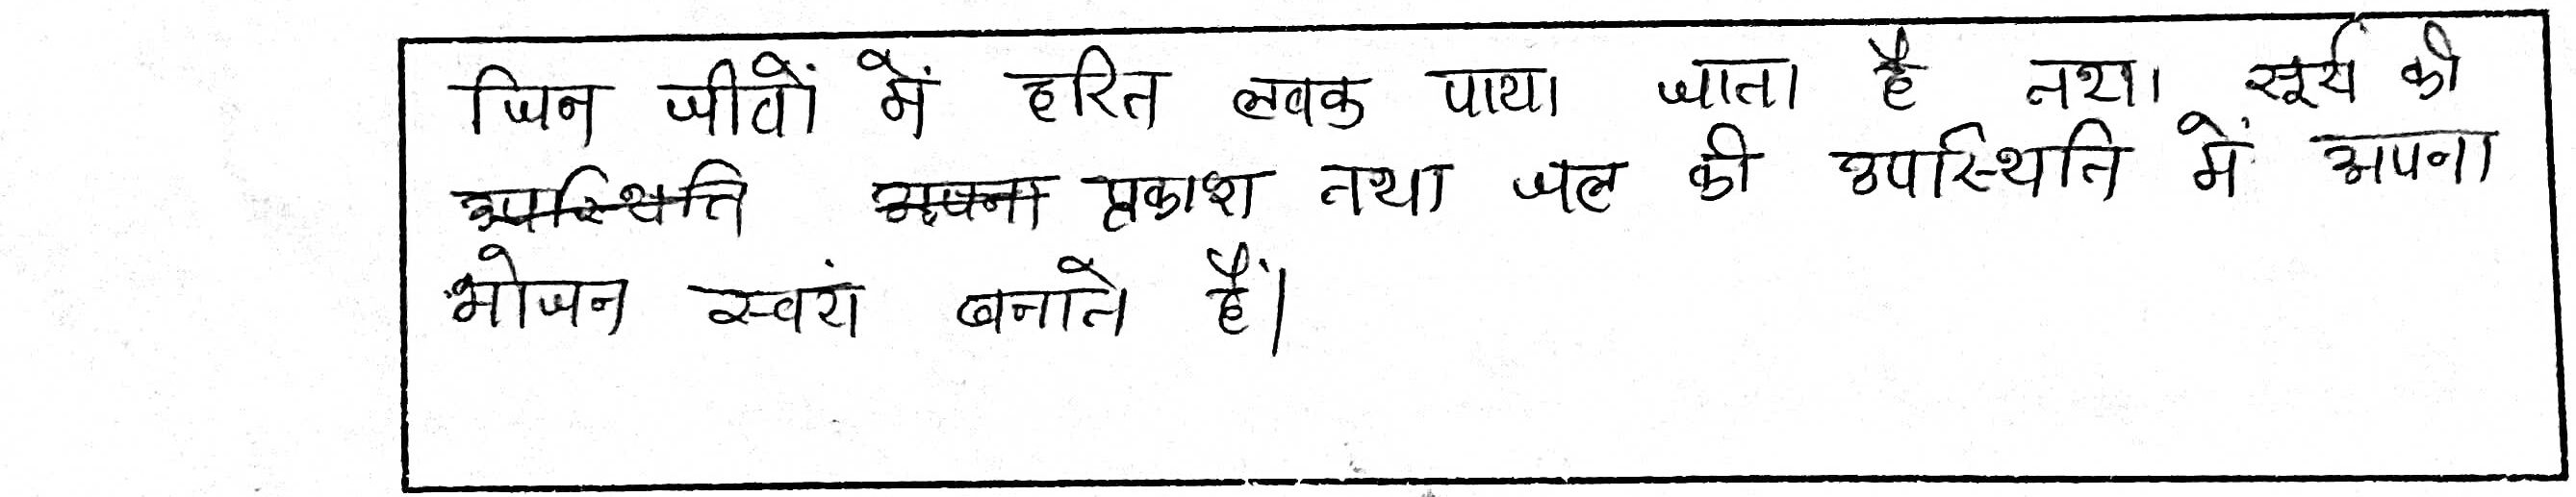 जिन जीवों में हरित लवक पाया जाता है तथा सूर्य की
उपस्थिति अपना प्रकाश तथा जल की उपस्थिति में अपना
भोजन स्वयं बनाते हैं।